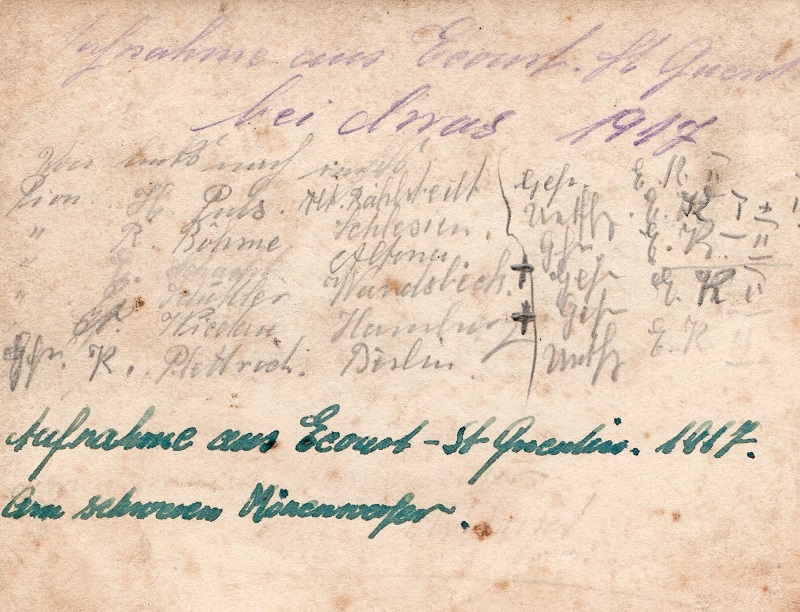 Aufnahme aus Ecourt. St Quent
bei Arras 1917
Von links nach rechts
Pion H. Puls. Gefr. E. K. II
" R. Böhme Schlesien. Unthz. E. K I + II
" Altona. Gfr. E. K. II
" Wandsbech. + Gefr E. K II
K. Hamburg + Gefr
Gfr. K. Plettrich. Berlin. Unthz E. K II
Aufnahme aus Ecourt - St Quentin. 1917.
Am schweren Minenwerfer.